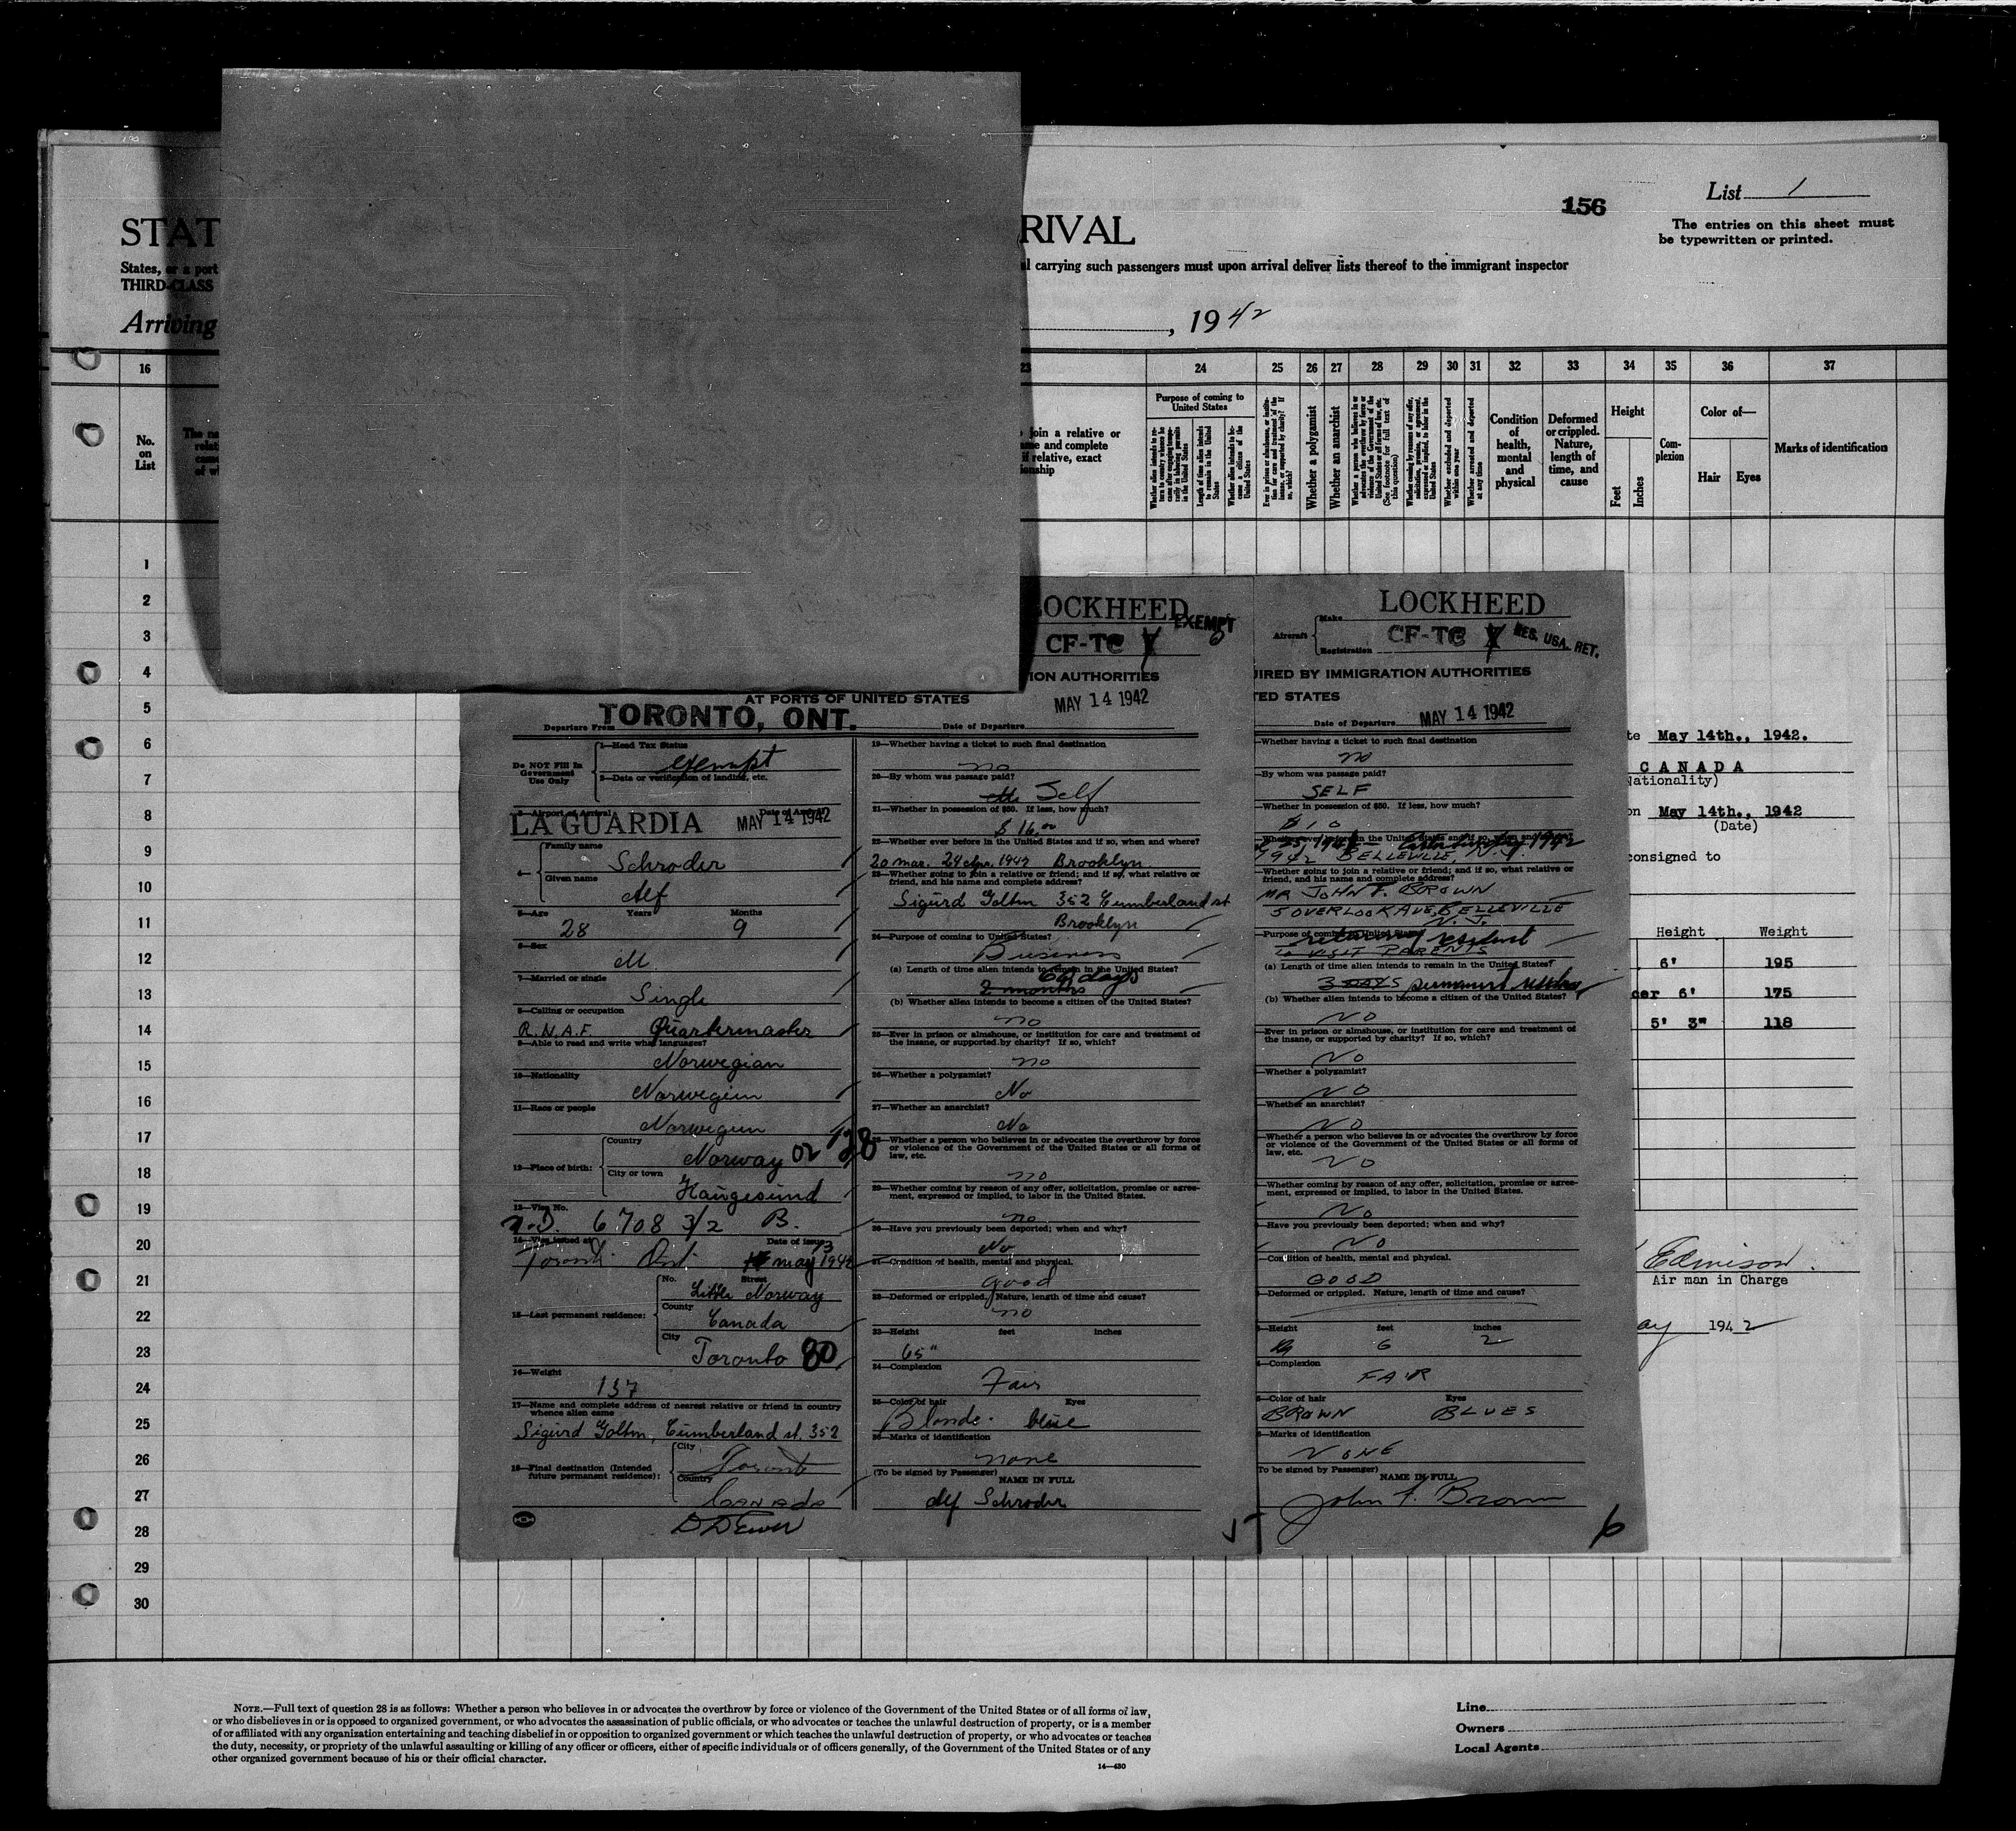 List 1
156
The entries on this sheet must
be typewritten or printed.
STAT
RIVAL
States, or a port
l carrying such passengers must upon arrival deliver lists thereof to the immigrant inspector
THIRD-CLASS
Arriving
, 1942
16
23
24
25
26
27
28
29
30
31
32
33
34
35
36
37
No.
on
List
join a relative or
me and complete
if relative, exact
ionship
Purpose of coming to
United States
Whether a polygamist
Whether an anarchist
Condition
of
health,
mental
and
physical
Deformed
or crippled.
Nature,
length of
time, and
cause
Height
Feet
Inches
Com-
plexion
Color of—
Hair
Eyes
Marks of identification
1
2
3
4
5
6
7
8
9
10
11
12
13
14
15
16
17
18
19
20
21
22
23
24
25
26
27
28
29
30
AT PORTS OF UNITED STATES
Departure From TORONTO, ONT.
1—Head Tax Status
Do NOT Fill In
Government
Use Only
exempt
2—Data or verification of landing, etc.
3—Airport of Arrival
Date of Arrival
LA GUARDIA MAY 14 1942
4—
Family name
Schroder
Given name
Alf
5—Age Years Months
28 9
6—Sex
M.
7—Married or single
Single
8—Calling or occupation
R.N.A.F. Quartermaster
9—Able to read and write what languages?
Norwegian
10—Nationality
Norwegian
11—Race or people
Norwegian
12—Place of birth:
Country
Norway 02 128
City or town
Haugesund
13—Visa No.
6708 3/2 B.
14—Visa issued at Date of issue
Toronto Ont 13 may 1942
15—Last permanent residence:
No. Street
Little Norway
County
Canada
City
Toronto 80
16—Weight
137
17—Name and complete address of nearest relative or friend in country
whence alien came
Sigurd Goltm, Cumberland st. 352
18—Final destination (Intended
future permanent residence):
City
Toronto
Country
CANADA
LOCKHEED
EXEMPT
CF-TC Y
ION AUTHORITIES
MAY 14 1942
Date of Departure
19—Whether having a ticket to such final destination
no
20—By whom was passage paid?
Self
21—Whether in possession of $50. If less, how much?
$ 16.00
22—Whether ever before in the United States and if so, when and where?
20 mar. 24 Apr. 1942 Brooklyn
23—Whether going to join a relative or friend; and if so, what relative or
friend, and his name and complete address?
Sigurd Goltm 352 Cumberland st
Brooklyn
24—Purpose of coming to United States?
Business
(a) Length of time alien intends to remain in the United States?
60 days
2 months
(b) Whether alien intends to become a citizen of the United States?
no
25—Ever in prison or almshouse, or institution for care and treatment of
the insane, or supported by charity? If so, which?
no
26—Whether a polygamist?
No
27—Whether an anarchist?
No
28—Whether a person who believes in or advocates the overthrow by force
or violence of the Government of the United States or all forms of
law, etc.
no
29—Whether coming by reason of any offer, solicitation, promise or agree-
ment, expressed or implied, to labor in the United States.
no
30—Have you previously been deported; when and why?
No
31—Condition of health, mental and physical.
good
32—Deformed or crippled. Nature, length of time and cause?
no
33—Height feet inches
65"
34—Complexion
Fair
35—Color of hair Eyes
Blonde. blue
36—Marks of identification
none
(To be signed by Passenger)
NAME IN FULL
Alf Schroder
5
LOCKHEED
Make
Aircraft
Registration
CF-TC Y
RES. USA. RET.
IRED BY IMMIGRATION AUTHORITIES
TED STATES
Date of Departure MAY 14 1942
—Whether having a ticket to such final destination
no
—By whom was passage paid?
SELF
—Whether in possession of $50. If less, how much?
$10
1942 BELLEVILLE, N.J.
—Whether going to join a relative or friend; and if so, what relative or
friend, and his name and complete address?
MR JOHN F. BROWN
5 OVERLOOK AVE, BELLEVILLE
N.J.
—Purpose of coming to United States?
returning resident
to VISIT PARENTS
(a) Length of time alien intends to remain in the United States?
3 DAYS
(b) Whether alien intends to become a citizen of the United States?
NO
—Ever in prison or almshouse, or institution for care and treatment of
the insane, or supported by charity? If so, which?
NO
—Whether a polygamist?
NO
—Whether an anarchist?
NO
—Whether a person who believes in or advocates the overthrow by force
or violence of the Government of the United States or all forms of
law, etc.
NO
—Whether coming by reason of any offer, solicitation, promise or agree-
ment, expressed or implied, to labor in the United States.
No
—Have you previously been deported; when and why?
NO
—Condition of health, mental and physical.
GOOD
—Deformed or crippled. Nature, length of time and cause?
—Height feet inches
6 2
—Complexion
FAIR
—Color of hair Eyes
BROWN BLUES
—Marks of identification
NONE
(To be signed by Passenger)
NAME IN FULL
John F. Brown
6
te May 14th., 1942.
CANADA
Nationality)
on May 14th., 1942
(Date)
consigned to
Height Weight
6' 195
cer 6' 175
5' 3" 118
Edmison.
Air man in Charge
ay 1942
NOTE.—Full text of question 28 is as follows: Whether a person who believes in or advocates the overthrow by force or violence of the Government of the United States or of all forms of law,
or who disbelieves in or is opposed to organized government, or who advocates the assassination of public officials, or who advocates or teaches the unlawful destruction of property, or is a member
of or affiliated with any organization entertaining and teaching disbelief in or opposition to organized government or which teaches the unlawful destruction of property, or who advocates or teaches
the duty, necessity, or propriety of the unlawful assaulting or killing of any officer or officers, either of specific individuals or of officers generally, of the Government of the United States or of any
other organized government because of his or their official character.
14—430
Line
Owners
Local Agents